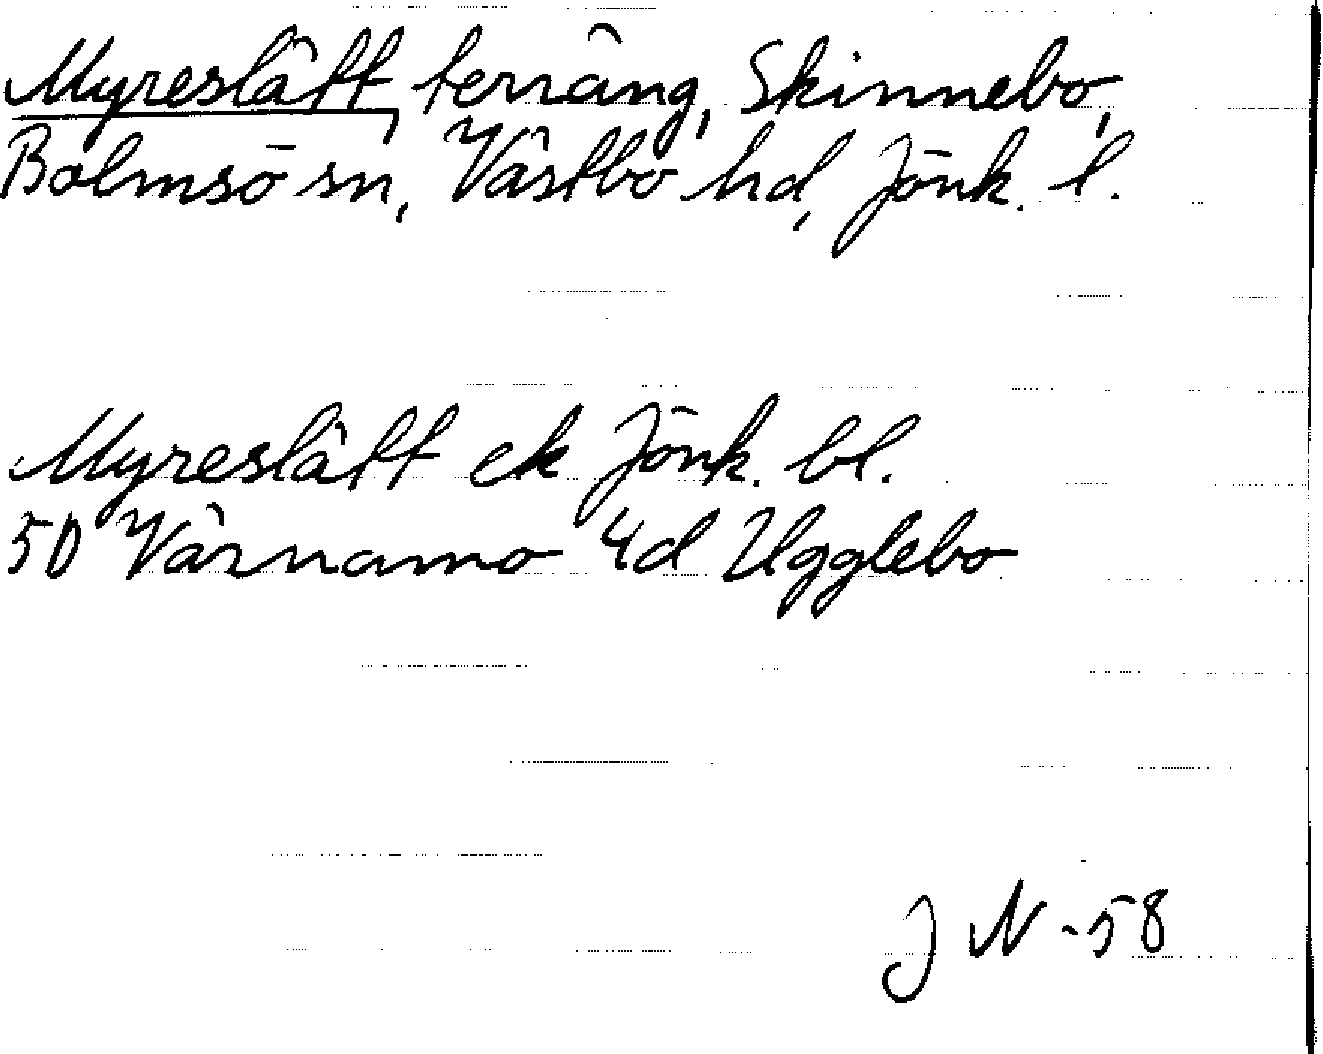 Myreslätt, terräng, Skinnebo,
Bolmsö sn, Västbo hd, Jönk. l.
Myreslätt ek Jönk. bl.
50 Värnamo 4d Ugglebo
J N -58